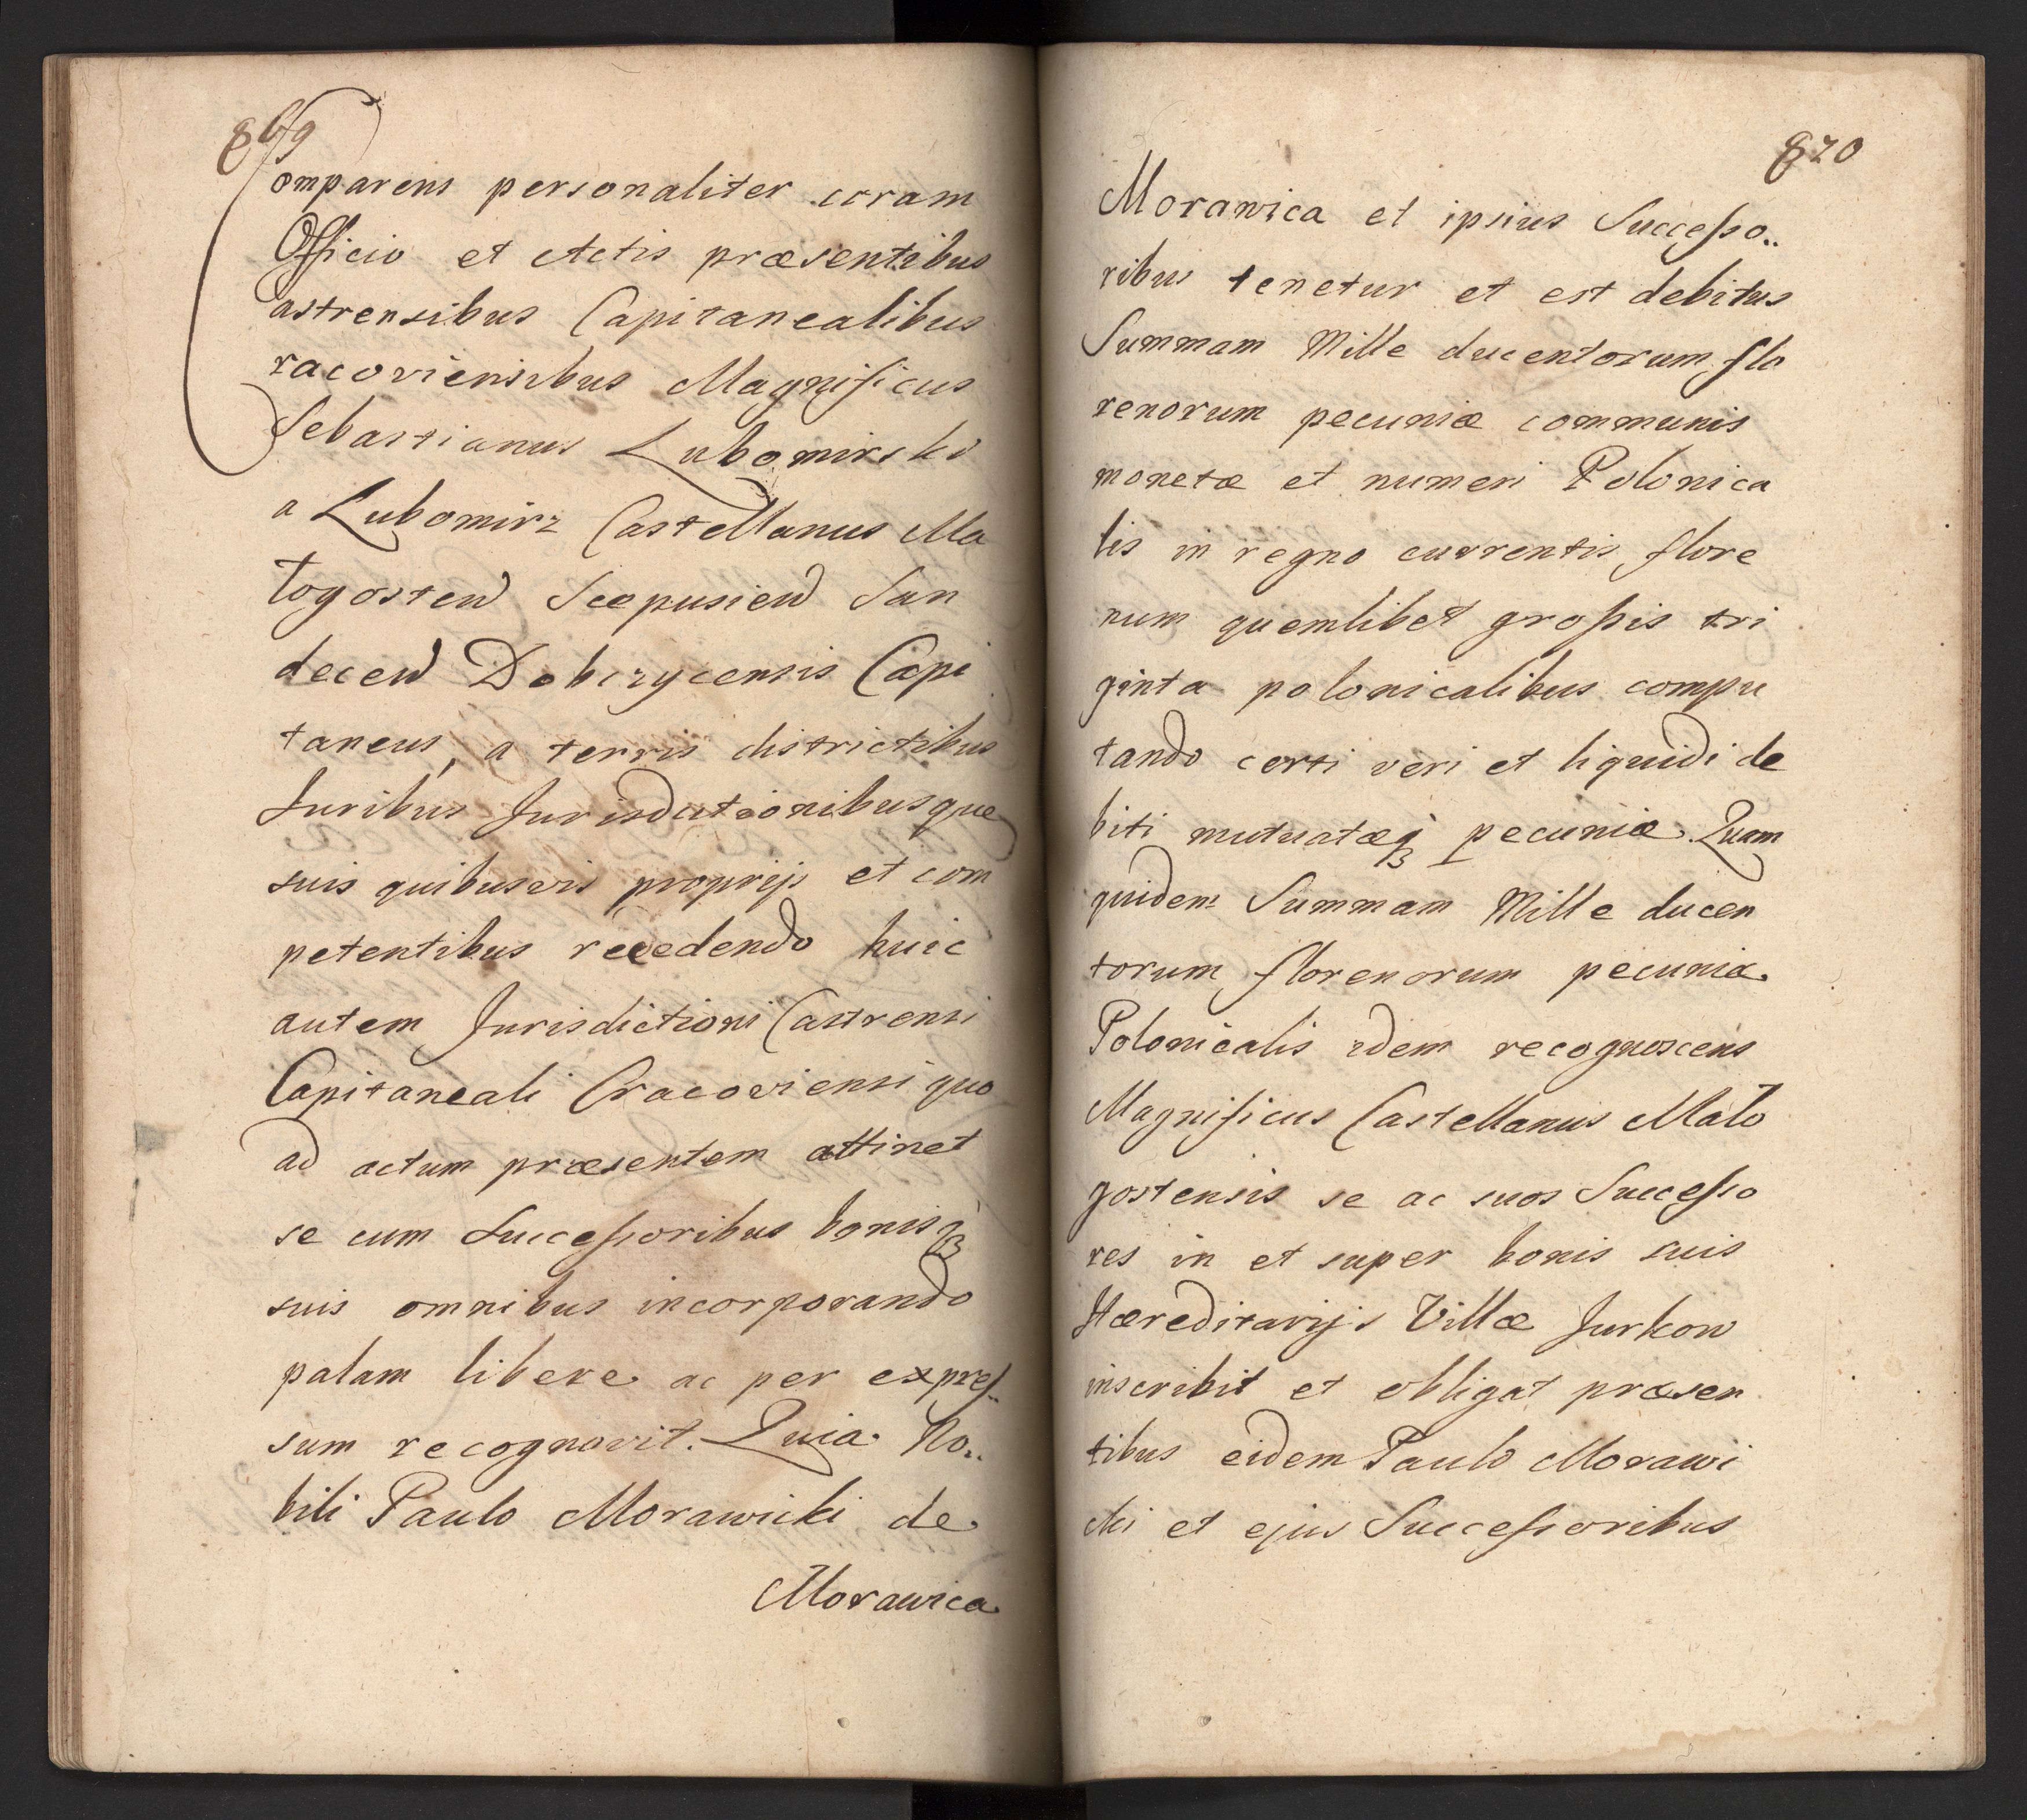 869
Comparens personaliter coram
Officio et Actis præsentibus
Castrensibus Capitanealibus
Cracoviensibus Magnificus
Sebastianus Lubomirski
a Lubomirz Castellanus Ma
logosten Scepusien San
decen Dobczycensis Capi
taneus, a terris districtibus
Juribus Jurisdictionibusque
suis quibusvis proprijs et com
petentibus recedendo huic
autem Jurisdictioni Castrensi
Capitaneali Cracoviensi quo
ad actum præsentem attinet
se cum Successoribus bonisq3
suis omnibus incorporando
palam libere ac per expres..
sum recognovit. Quia No..
bili Paulo Morawicki de
Morawica
870
Morawica et ipsius Successo..
ribus tenetur et est debitus
Summam Mille ducentorum flo
renorum pecuniæ communis
monetæ et numeri Polonica
lis in regno currentis flore
num quemlibet grossis tri
ginta polonicalibus compu
tando certi veri et liquidi de
biti mutuatæq3 pecuniæ. Quam
quidem Summam Mille ducen
torum florenorum pecuniæ
Polonicalis idem recognoscens
Magnificus Castellanus Malo
gostensis se ac suos Successo
res in et super bonis suis
Hæreditarijs Villæ Jurkow
inscribit et obligat præsen
tibus eidem Paulo Morawi
cki et ejus Successoribus